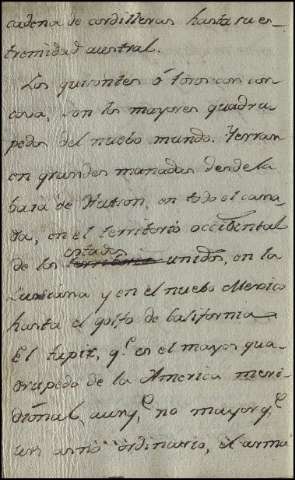 cadena de cordilleras hasta su es-
tremidad austral.
Los                ó toros con con-
cova, son los mayores quadru-
pedos del nuebo mundo.
en grandes manadas desde la
                    en todo el cana-
da, en el territorio occidental
de los estados unidos, en la
Luisiana y en el nuebo Mexico
hasta el golfo de California
El tapir, q.e es el mayor qua-
drupedo de la America meri-
dional, aunq.e no mayor q.e
un asno ordinario, el arma